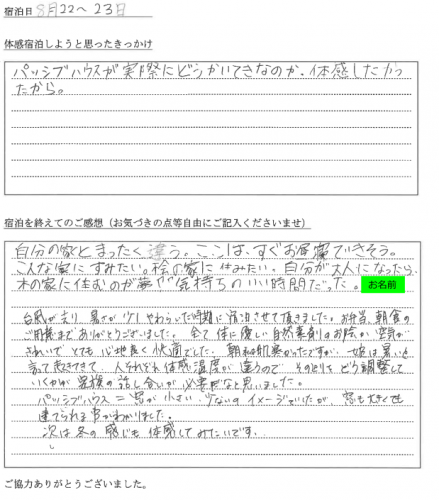 宿泊日 8月22〜23日
体感宿泊しようと思ったきっかけ
パッシブハウスが実際にどうかいてきなのか、体感したかっ
たから。
宿泊を終えてのご感想（お気づきの点等自由にご記入くださいませ）
自分の家とまったく違う。ここは、すぐお昼寝できそう。
こんな家にすみたい。桧の家に住みたい。自分が大人になったら、
木の家に住むのが夢。気持ちのいい時間だった。 お名前
台風が去り、暑さが少しやわらいだ時期に宿泊させて頂きました。お弁当、朝食の
ご用意までありがとうございました。全て体に優しい自然素材のお陰か空気が
きれいでとても心地良く快適でした。朝は肌寒かったですが、娘は暑いと
言って起きてきて、人それぞれ体感温度が違うので そのあたりをどう調整して
いくかが家族の話し合いが必要だなと思いました。
パッシブハウス＝窓が小さい、少ないのイメージでいたが、窓も大きくても
建てられる事がわかりました。
次は冬の感じも体感してみたいです。
ご協力ありがとうございました。